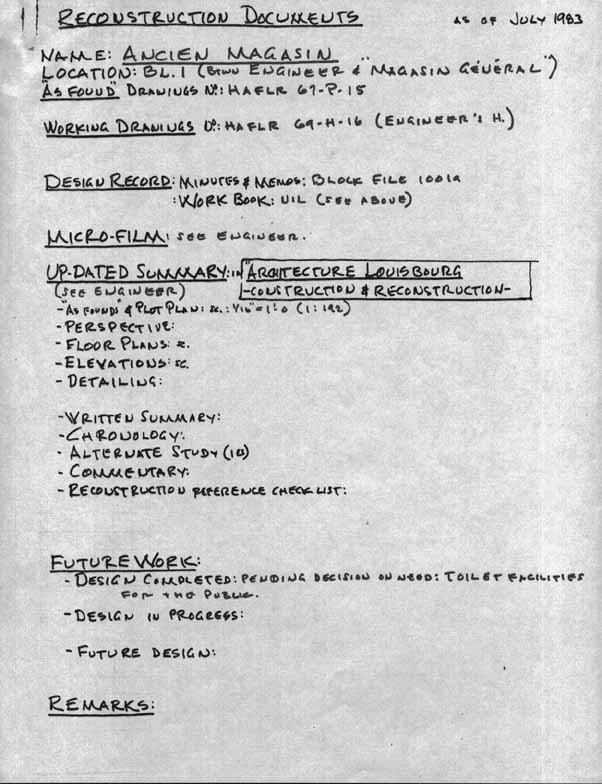 RECONSTRUCTION DOCUMENTS AS OF JULY 1983
NAME: ANCIEN MAGASIN
LOCATION: BL. 1 (BTWN ENGINEER & "MAGASIN GÉNÉRAL")
"AS FOUND" DRAWINGS No: HAFLR 67-P-15
WORKING DRAWINGS No: HAFLR 69-H-16 (ENGINEER'S H.)
DESIGN RECORD: MINUTES & MEMOS: BLOCK FILE 1001A
: WORK BOOK: NIL (SEE ABOVE)
MICRO-FILM: SEE ENGINEER.
UP-DATED SUMMARY: IN "ARCHITECTURE LOUISBOURG
(SEE ENGINEER) -CONSTRUCTION & RECONSTRUCTION-
- "AS FOUNDS" & PLOT PLAN: SC.: 1/16" = 1'.0 (1:192)
- PERSPECTIVE:
- FLOOR PLANS: SC.
- ELEVATIONS: SC.
- DETAILING:
- WRITTEN SUMMARY:
- CHRONOLOGY:
- ALTERNATE STUDY (10)
- COMMENTARY:
- RECONSTRUCTION REFERENCE CHECK LIST:
FUTURE WORK:
- DESIGN COMPLETED: PENDING DECISION ON NEED: TOILET FACILITIES
FOR THE PUBLIC.
- DESIGN IN PROGRESS:
- FUTURE DESIGN:
REMARKS: